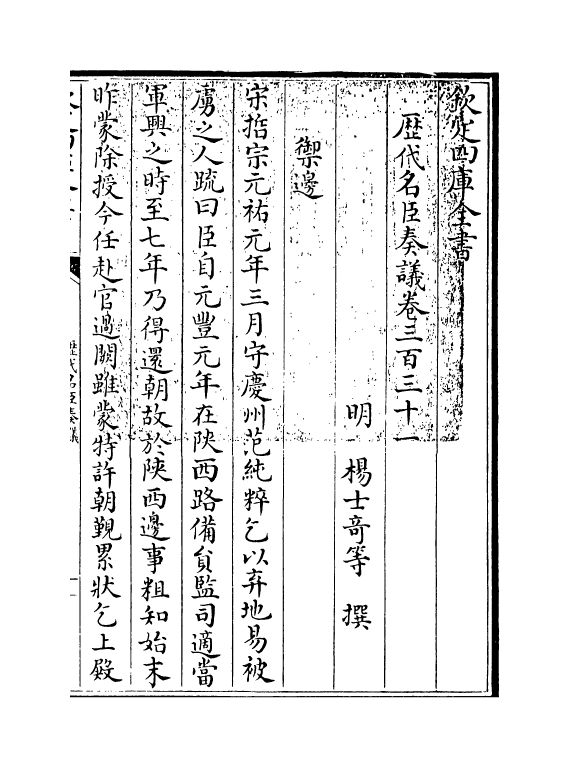 欽定四庫全書
歴代名臣奏議卷三百三十一
明 楊士竒等 撰
禦邊
宋哲宗元祐元年三月守慶州范純粹乞以弃地易被
虜之人疏曰臣自元豐元年在陜西路備貟監司適當
軍興之時至七年乃得還朝故於陜西邊事粗知始末
昨蒙除授今任赴官過闕雖蒙特許朝覲累狀乞上殿
歴代名臣奏議
一